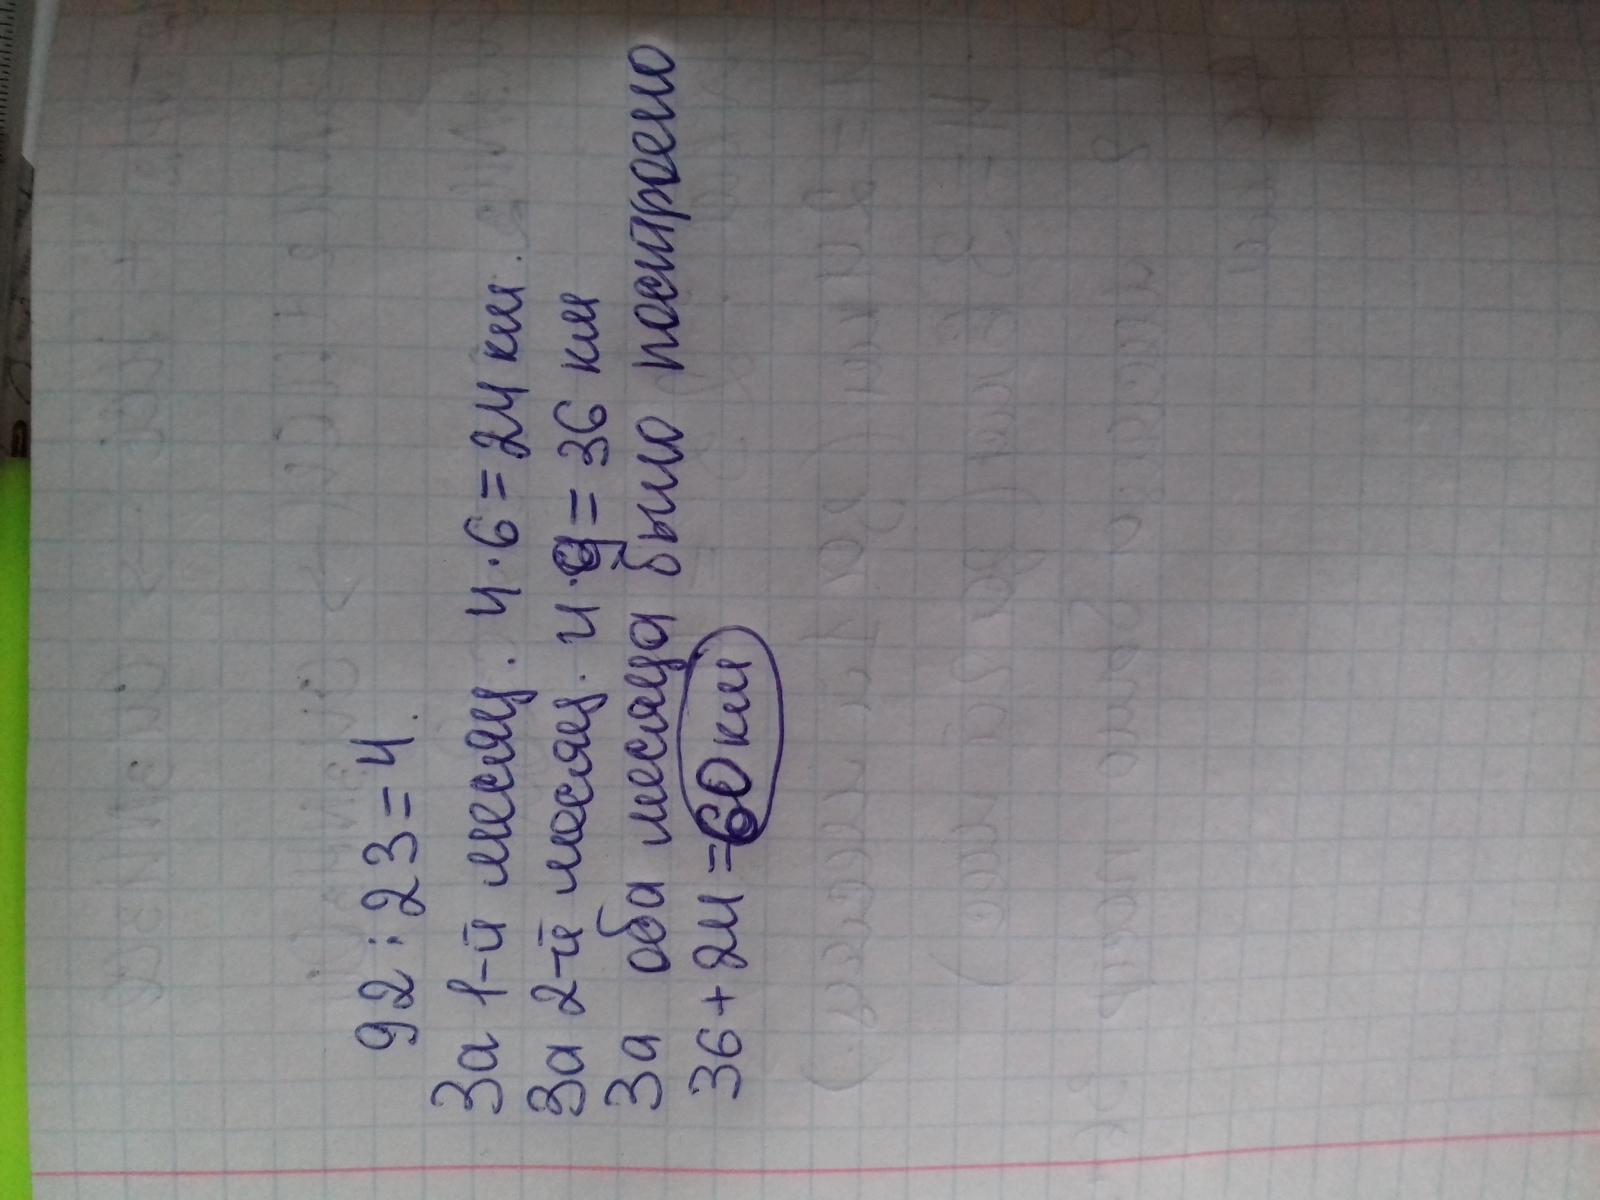 92 : 23 = 4.
За 1-й месяц. 4·6 = 24 км.
За 2-й месяц. 4·9 = 36 км
За оба месяца было построено
36 + 24 = 60 км